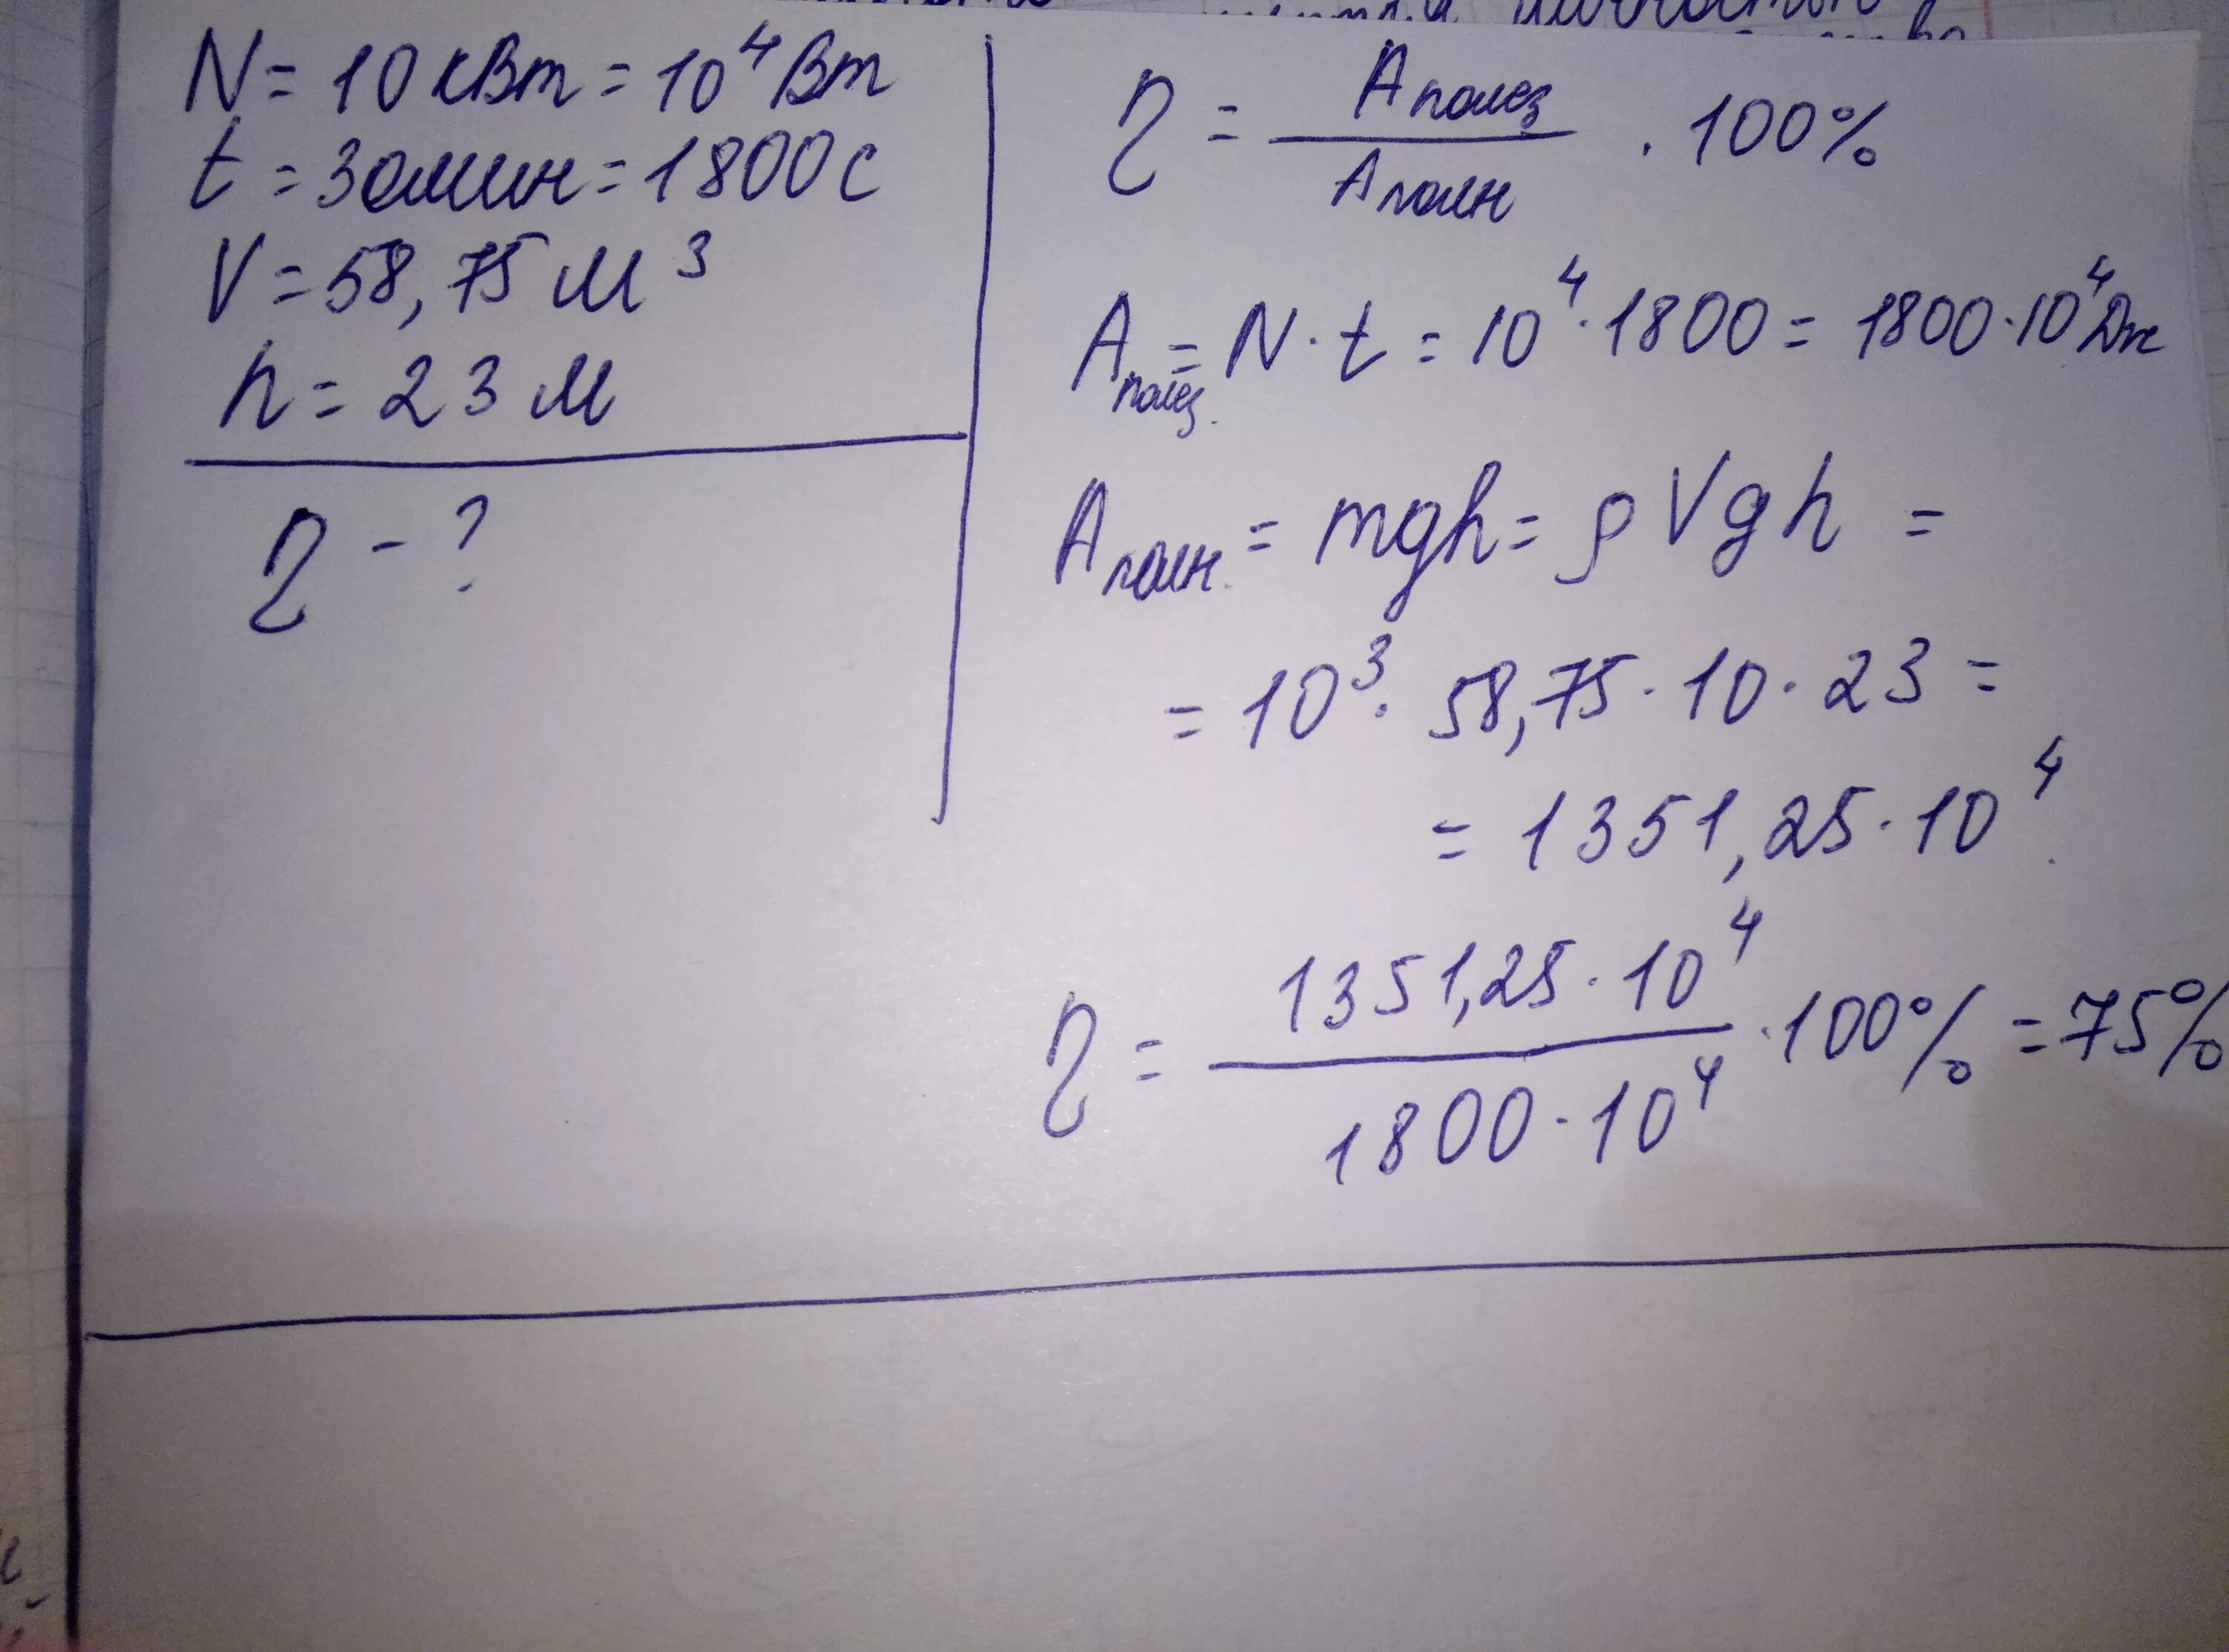 N = 10 кВт = 10⁴ Вт
t = 30мин = 1800 с
V = 58,75 м³
h = 23 м
η - ?
η = Aполез / Aполн · 100%
Aполез. = N · t = 10⁴ · 1800 = 1800 · 10⁴ Дж
Aполн. = mgh = ρVgh =
= 10³ · 58,75 · 10 · 23 =
= 1351,25 · 10⁴
η = 1351,25 · 10⁴ / 1800 · 10⁴ · 100% = 75%